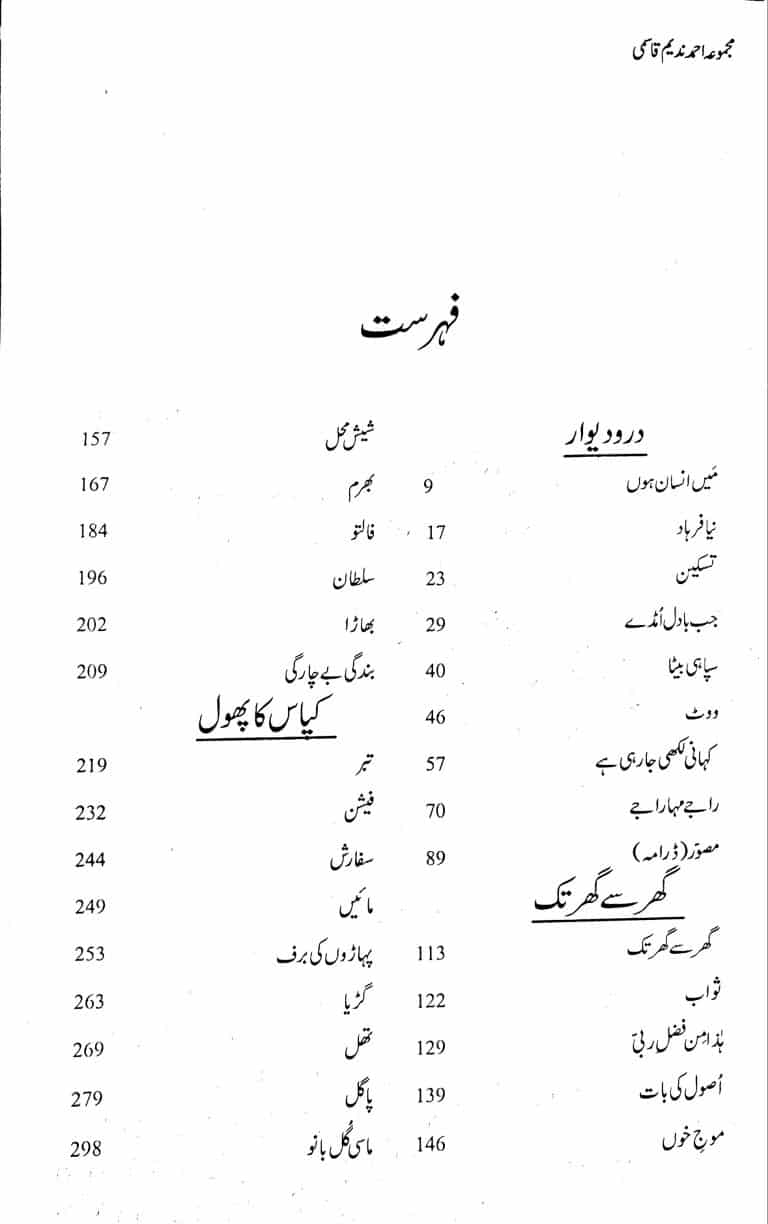 مجموعہ احمد ندیم قاسمی
فہرست
در و دیوار
مَیں انسان ہوں 9
نیا فرہاد 17
تسکین 23
جب بادل اُمڈے 29
سپاہی بیٹا 40
ووٹ 46
کہانی لکھی جا رہی ہے 57
راجے مہاراجے 70
مصوّر (ڈرامہ) 89
گھر سے گھر تک
گھر سے گھر تک 113
ثواب 122
ہٰذا مِن فضلِ ربیّ 129
اُصول کی بات 139
موجِ خوں 146
شیش محل 157
بھرم 167
فالتو 184
سلطان 196
بھاڑا 202
بندگی بے چارگی 209
کپاس کا پھول
تبر 219
فیشن 232
سفارش 244
مائیں 249
پہاڑوں کی برف 253
گڑیا 263
تھل 269
پاگل 279
ماسی گُل بانو 298